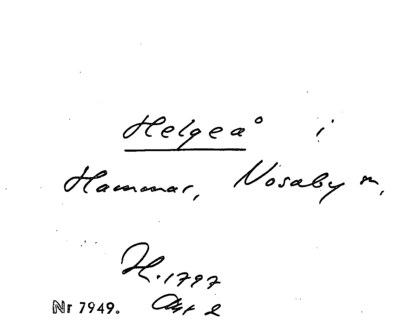 Helgeå i
Hammar, Nosaby sn,
H. 1797
Nr 7949. Akt 2